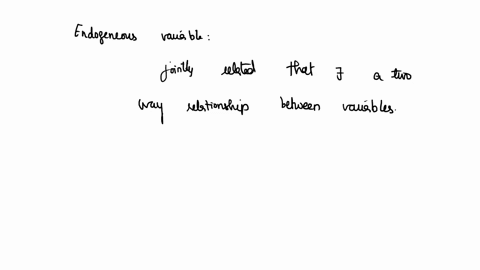 Endogeneous variable:
jointly related that ∃ a two
way relationship between variables.